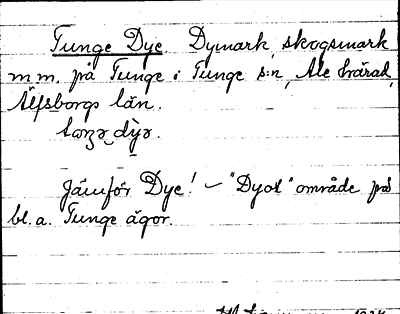 Tunge Dye. Dymark, skogsmark
m.m. på Tunge i Tunge s:n, Ale härad,
Älfsborgs län.
Jämför Dye! – "Dyot" område på
bl.a. Tunge ägor.